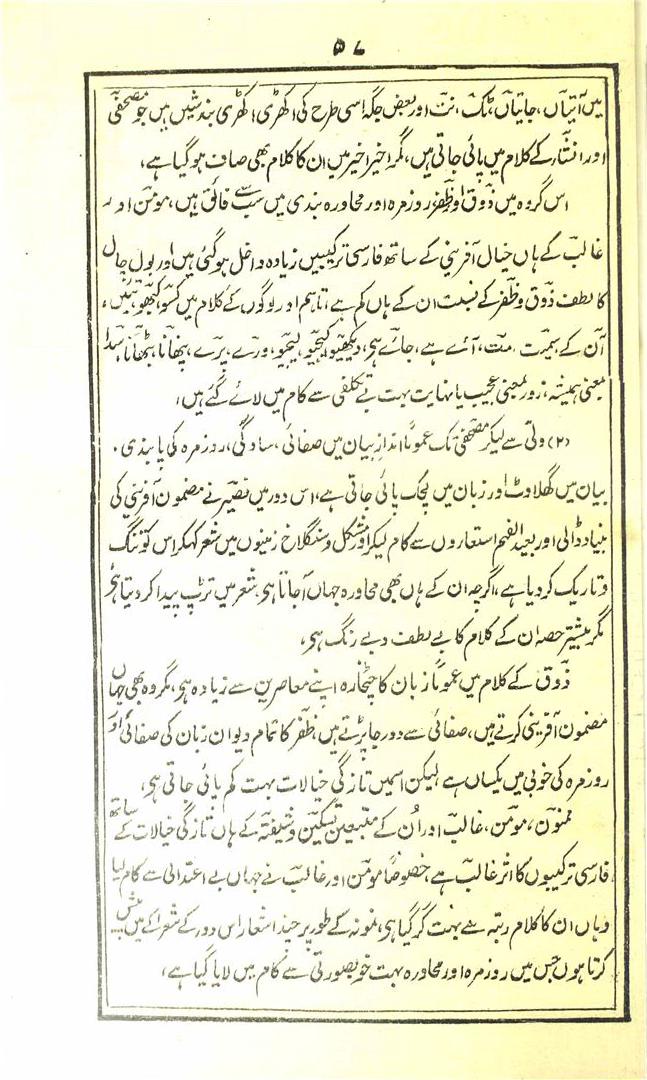 ۵۷
میں آتیاں، جاتیاں، تُک، نت اور بعض جگہ اسی طرح کی اکھڑی اکھڑی بندشیں ہیں جو مصحفی
اور انشار کے کلام میں پائی جاتی ہیں، مگر اخیر اخیر میں ان کا کلام بھی صاف ہو گیا ہے،
اس گروہ میں ذوق و ظفر، روزمرہ اور محاورہ بندی میں سب سے فائق ہیں، مومن اور
غالب کے ہاں خیال آفرینی کے ساتھ فارسی ترکیبیں زیادہ داخل ہو گئی ہیں اور بول چال
کا لطف ذوق و ظفر کے نسبت ان کے ہاں کم ہے، تاہم اور لوگوں کے کلام میں کسو، کبھو، تئیں،
آن کے، مت، آئے ہے، جائے ہی، دیکھیو، کیجیو، لیجیو، ورے، پرے، پنھانا، بٹھانا، سدا
بمعنی ہمیشہ، زور بمعنی عجیب یا نہایت بہت بے تکلفی سے کام میں لائے گئے ہیں،
(۲) ولی سے لیکر مصحفی تک عموماً انداز بیان میں صفائی، سادگی، روزمرہ کی پابندی،
بیان میں گھلاوٹ اور زبان میں لچک پائی جاتی ہے، اس دور میں نصیر نے مضمون آفرینی کی
بنیاد ڈالی اور بعید الفہم استعاروں سے کام لیکر اور مشکل و سنگلاخ زمینوں میں شعر کہکر اس کو تنگ
و تاریک کر دیا ہے، اگرچہ ان کے ہاں بھی محاورہ جہاں آجاتا ہی، شعر میں تڑپ پیدا کر دیتا ہی
مگر بیشتر حصہ ان کے کلام کا بے لطف و بے رنگ ہی،
ذوق کے کلام میں عموماً زبان کا چٹخارہ اپنے معاصرین سے زیادہ ہی، مگر وہ بھی جہاں
مضمون آفرینی کرتے ہیں، صفائی سے دور جا پڑتے ہیں، ظفر کا تمام دیوان زبان کی صفائی اور
روزمرہ کی خوبی میں یکساں ہے لیکن اسمیں تازگی خیالات بہت کم پائی جاتی ہی،
ممنون، مومن، غالب اور اُن کے متبعین تسکین و شیفتہ کے ہاں تازگی خیالات کے ساتھ
فارسی ترکیبوں کا اثر غالب ہے، خصوصاً مومن اور غالب نے جہاں بے اعتدالی سے کام لیا
وہاں ان کا کلام رتبہ سے بہت گر گیا ہی، نمونہ کے طور پر چند اشعار اس دور کے شعرا کے میں پیش
کرتا ہوں جس میں روزمرہ اور محاورہ بہت خوبصورتی سے کام میں لایا گیا ہے،